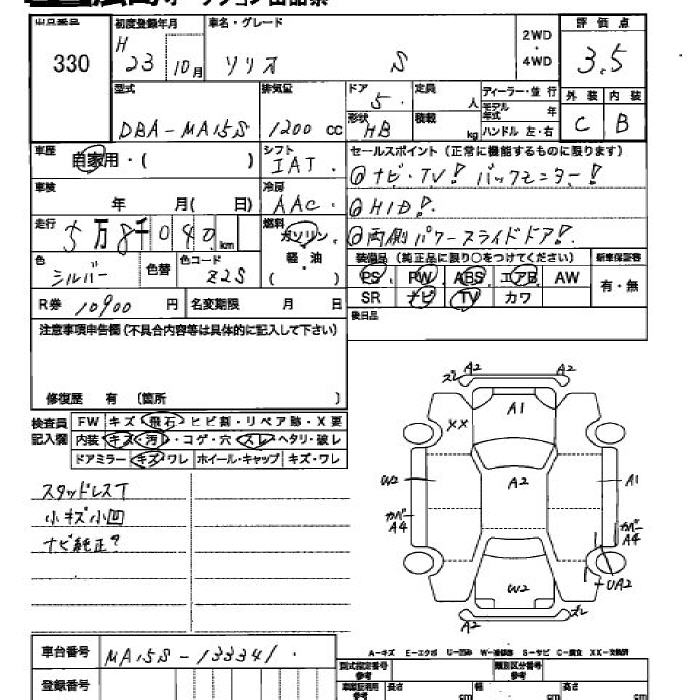 出品番号 初度登録年月 車名・グレード 評価点
330 H 23 10月 ソリオ S 2WD・4WD 3.5
型式 排気量 ドア 定員 ディーラー・並行 外装 内装
DBA-MA15S 1200 cc 5 人 モデル年式 年 C B
形状 HB 積載 kg ハンドル 左・右
車歴 自家用・( ) シフト IAT. セールスポイント (正常に機能するものに限ります)
車検 年 月( 日) 冷房 AAC. ◎ナビ・TV! バックモニター!
◎HID!
走行 5万8千040km 燃料 ガソリン ◎両側パワースライドドア!
色 シルバー 色替 色コード Z2S 軽・油 ( )
装備品 (純正品に限り○をつけてください) 新車保証書
PS PW ABS エアB AW 有・無
SR ナビ TV カワ
R券 10900 円 名変期限 月 日 後日品
注意事項申告欄 (不具合内容等は具体的に記入して下さい)
修復歴 有 〔箇所 〕
検査員記入欄 FW キズ・飛石・ヒビ割・リペア跡・X要
内装 キズ・汚・コゲ・穴・スレ・ヘタリ・破レ
ドアミラー キズ・ワレ ホイール・キャップ キズ・ワレ
スタッドレスT
小キズ小凹
ナビ純正?
A2 A2
ズレ
A1
XX
W2 A2 A1
カバー A4 カバー A4
W2 UA2
A2 ズレ
A-キズ E-エクボ U-凹み W-補修跡 S-サビ C-腐食 XX-交換済
車台番号 MA15S-133341.
登録番号
型式指定番号 参考 類別区分番号 参考
長さ cm 幅 cm 高さ cm